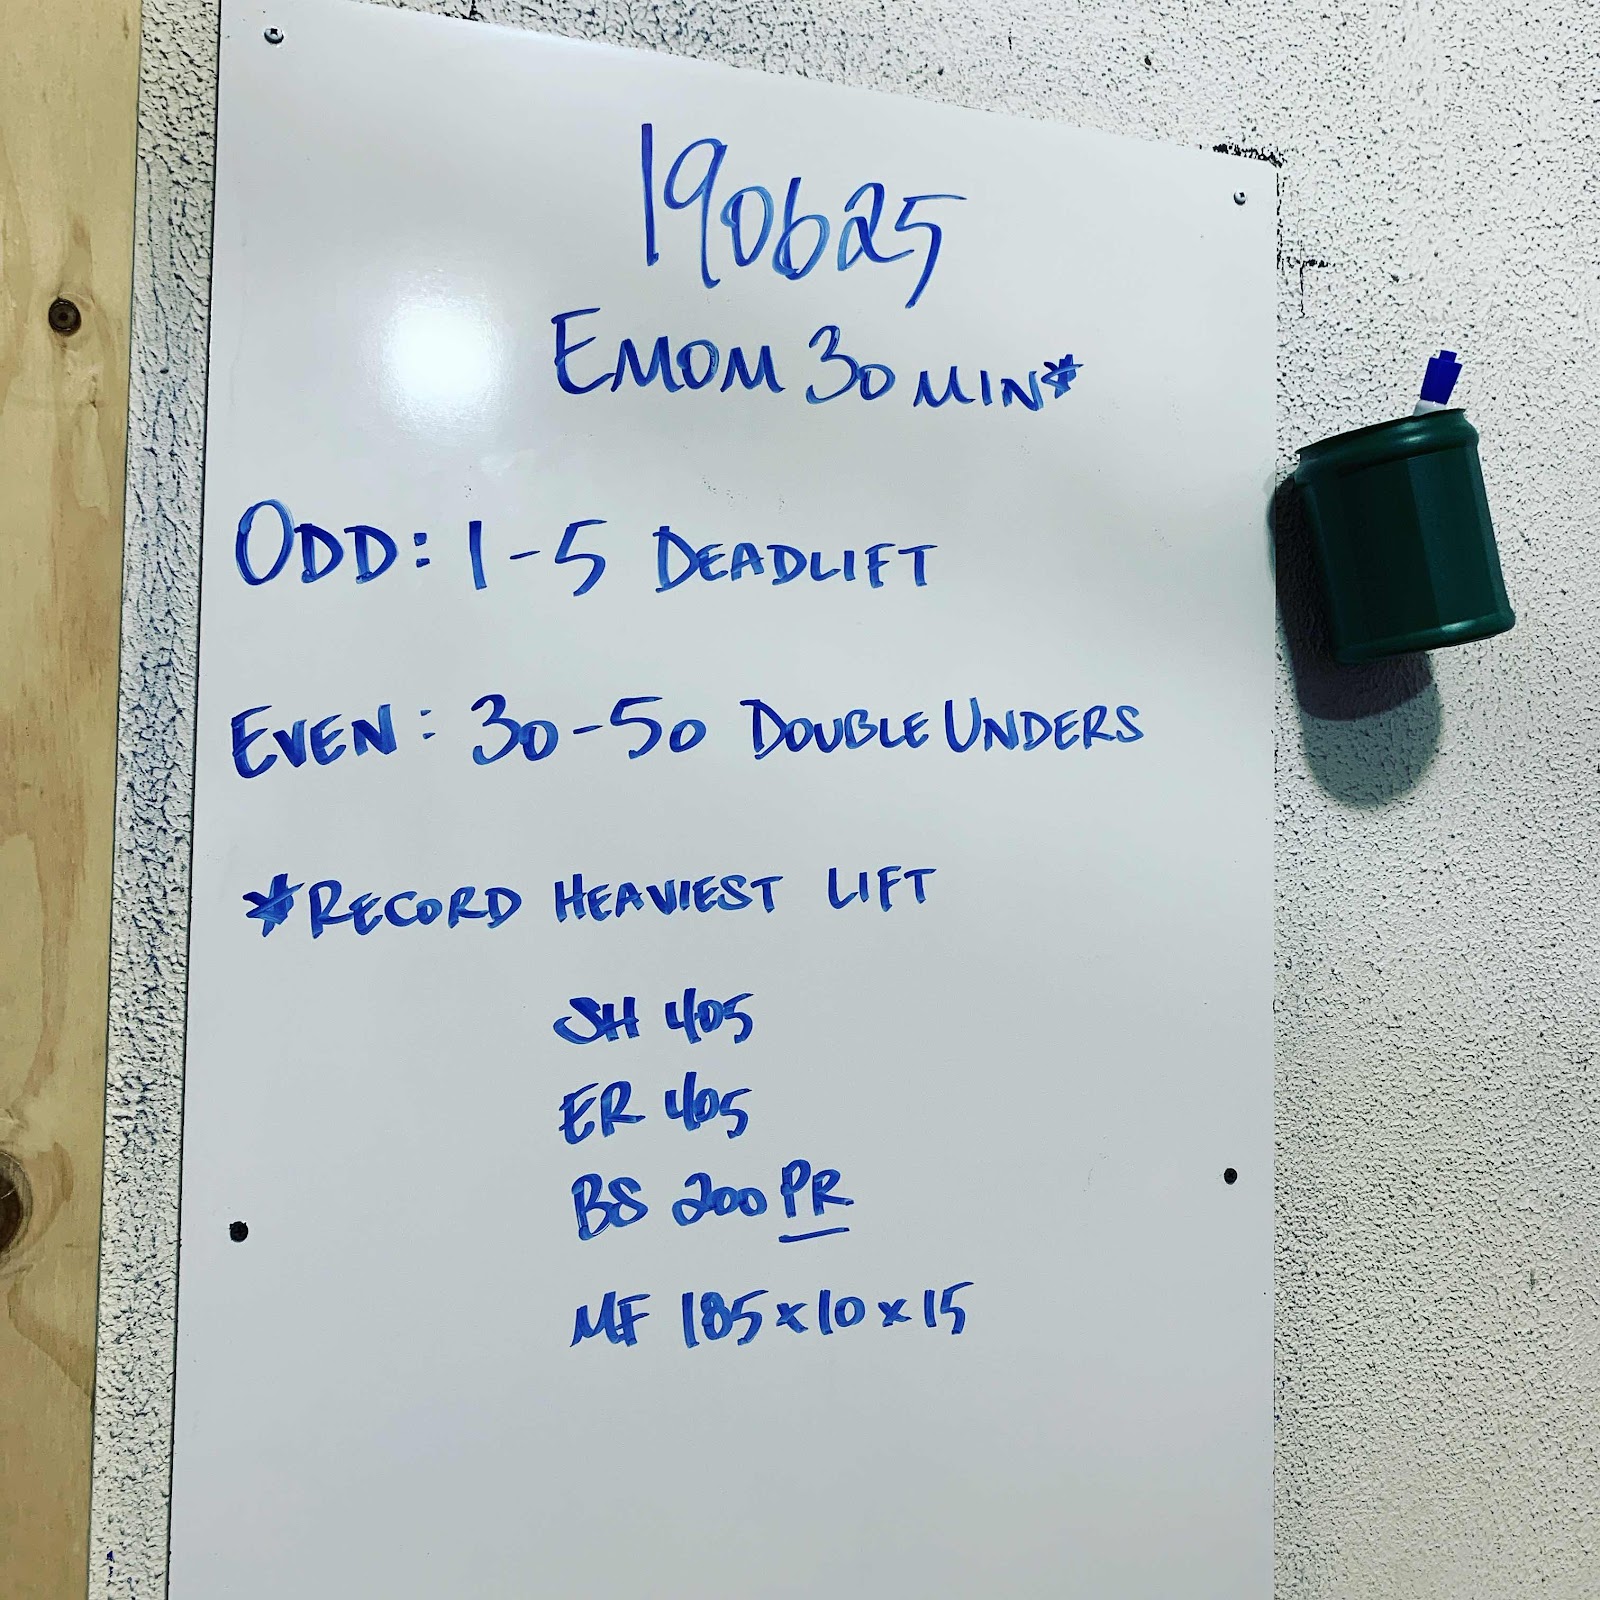 190625
EMOM 30 MIN*
ODD: 1-5 DEADLIFT
EVEN: 30-50 DOUBLE UNDERS
*RECORD HEAVIEST LIFT
SH 405
ER 405
BS 200 PR
MF 185x10x15